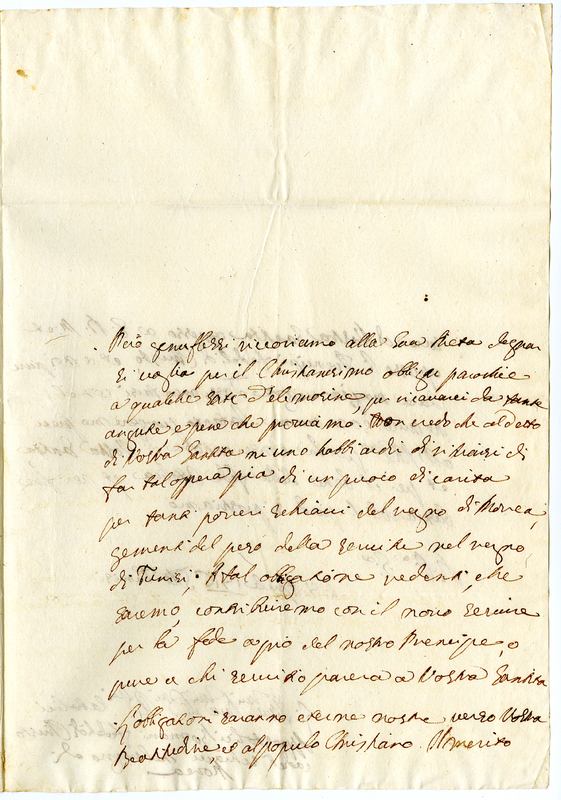 Però genuflessi ricoriamo alla Sua Pietà degnar
si voglia per il Christianesimo obligar parochie
a qualche sorte d'elimosine, per ricavarci da tante
angustie e pene che proviamo. Non credo che al detto
di Vostra Santità ni uno habbi ardir di ritirarsi di
far tal opera pia di un puoco di carità
per tanti poveri schiavi del regno di Morea,
gementi del peso della servitù nel regno
di Tunisi. A tal obligazione redenti, che
saremo, contribuiremo con il novo servire
per la fede a pio del nostro Prencipe, o
pure a chi servito parerà a Vostra Santità
L'obligazioni saranno eterne nostre verso Vostra
Beatitudine et al populo Christiano. Il merito